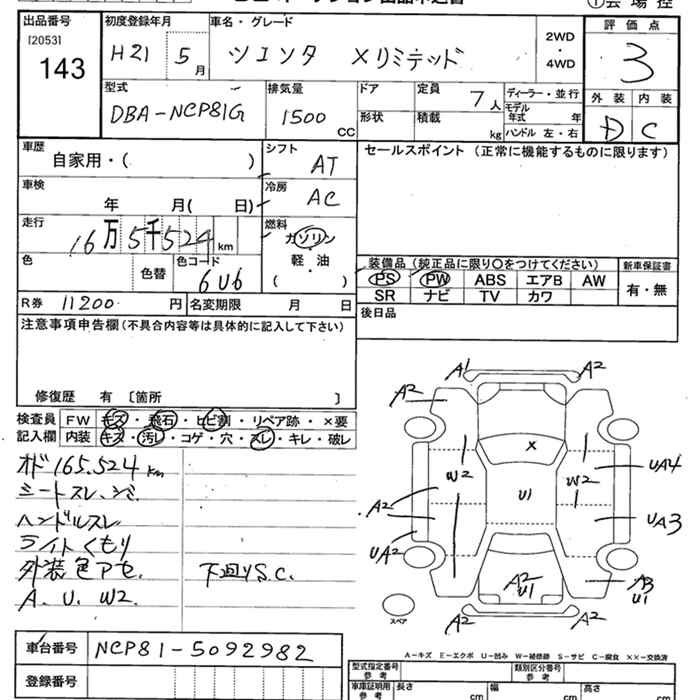 ①会場控
出品番号 初度登録年月 車名・グレード 2WD・4WD 評価点
[2053]
143
H21 5月 シエンタ Xリミテッド 3
型式 排気量 ドア 定員 7人 ディーラー・並行 外装 内装
DBA-NCP81G 1500CC 形状 積載 kg モデル年式 年 D C
ハンドル 左・右
車歴 自家用・( ) シフト AT セールスポイント (正常に機能するものに限ります)
車検 年 月( 日) 冷房 AC
走行 16万5千524km 燃料 ガソリン
軽・油
( )
色 色替 色コード 6U6
装備品 (純正品に限り○をつけてください) 新車保証書
PS PW ABS エアB AW 有・無
SR ナビ TV カワ
R券 11200円 名変期限 月 日 後日品
注意事項申告欄(不具合内容等は具体的に記入して下さい)
修復歴 有 [箇所 ]
検査員 FW キズ・飛石・ヒビ割・リペア跡・×要
記入欄 内装 キズ・汚レ・コゲ・穴・スレ・キレ・破レ
オド165.524km
シートスレ、シミ.
ハンドルスレ
ライトくもり
外装色アセ. 下廻りS.C.
A. U. W2.
A1 A2
A2
X
W2 W2 UA4
U1
A2 UA3
UA2
A2 U1 A3 U1
A2 A2
スペア
A-キズ E-エクボ U-凹み W-補修跡 S-サビ C-腐食 ××-交換済
車台番号 NCP81-5092982
登録番号
型式指定番号 参考 類別区分番号 参考
車庫証明用 参考 長さ cm 幅 cm 高さ cm